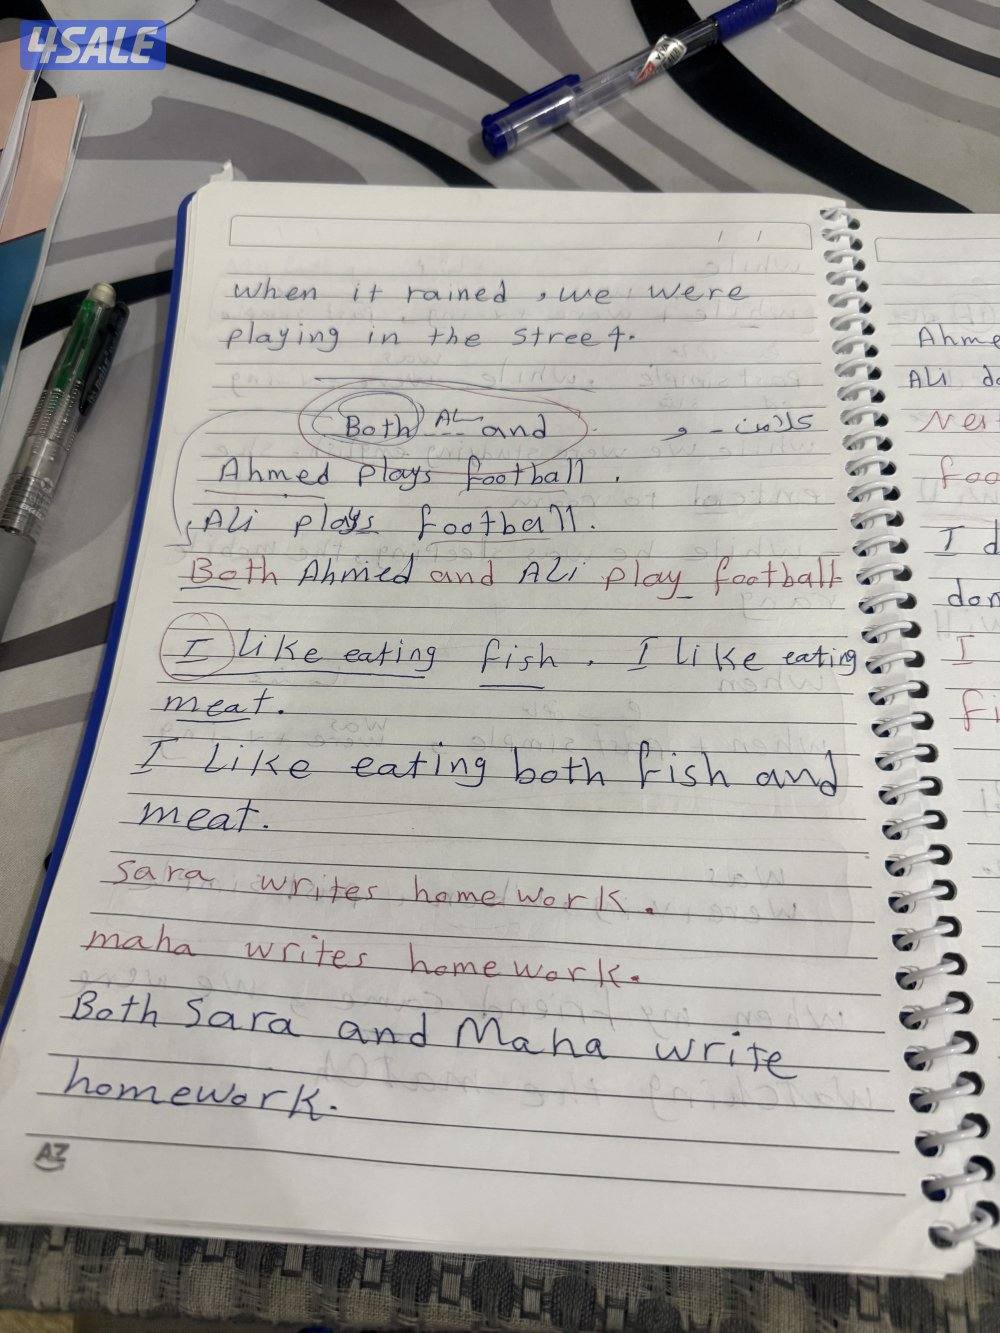 4SALE
when it rained , we were
playing in the street.
Both --- and كلا من - و
Ahmed plays football .
ALi plays football.
Both Ahmed and ALi play football
I like eating fish . I like eating
meat.
I like eating both fish and
meat.
sara writes homework.
maha writes homework.
Both Sara and Maha write
homework.
AZ
Ahme
ALi do
Nei
foo
I d
don
I
fi